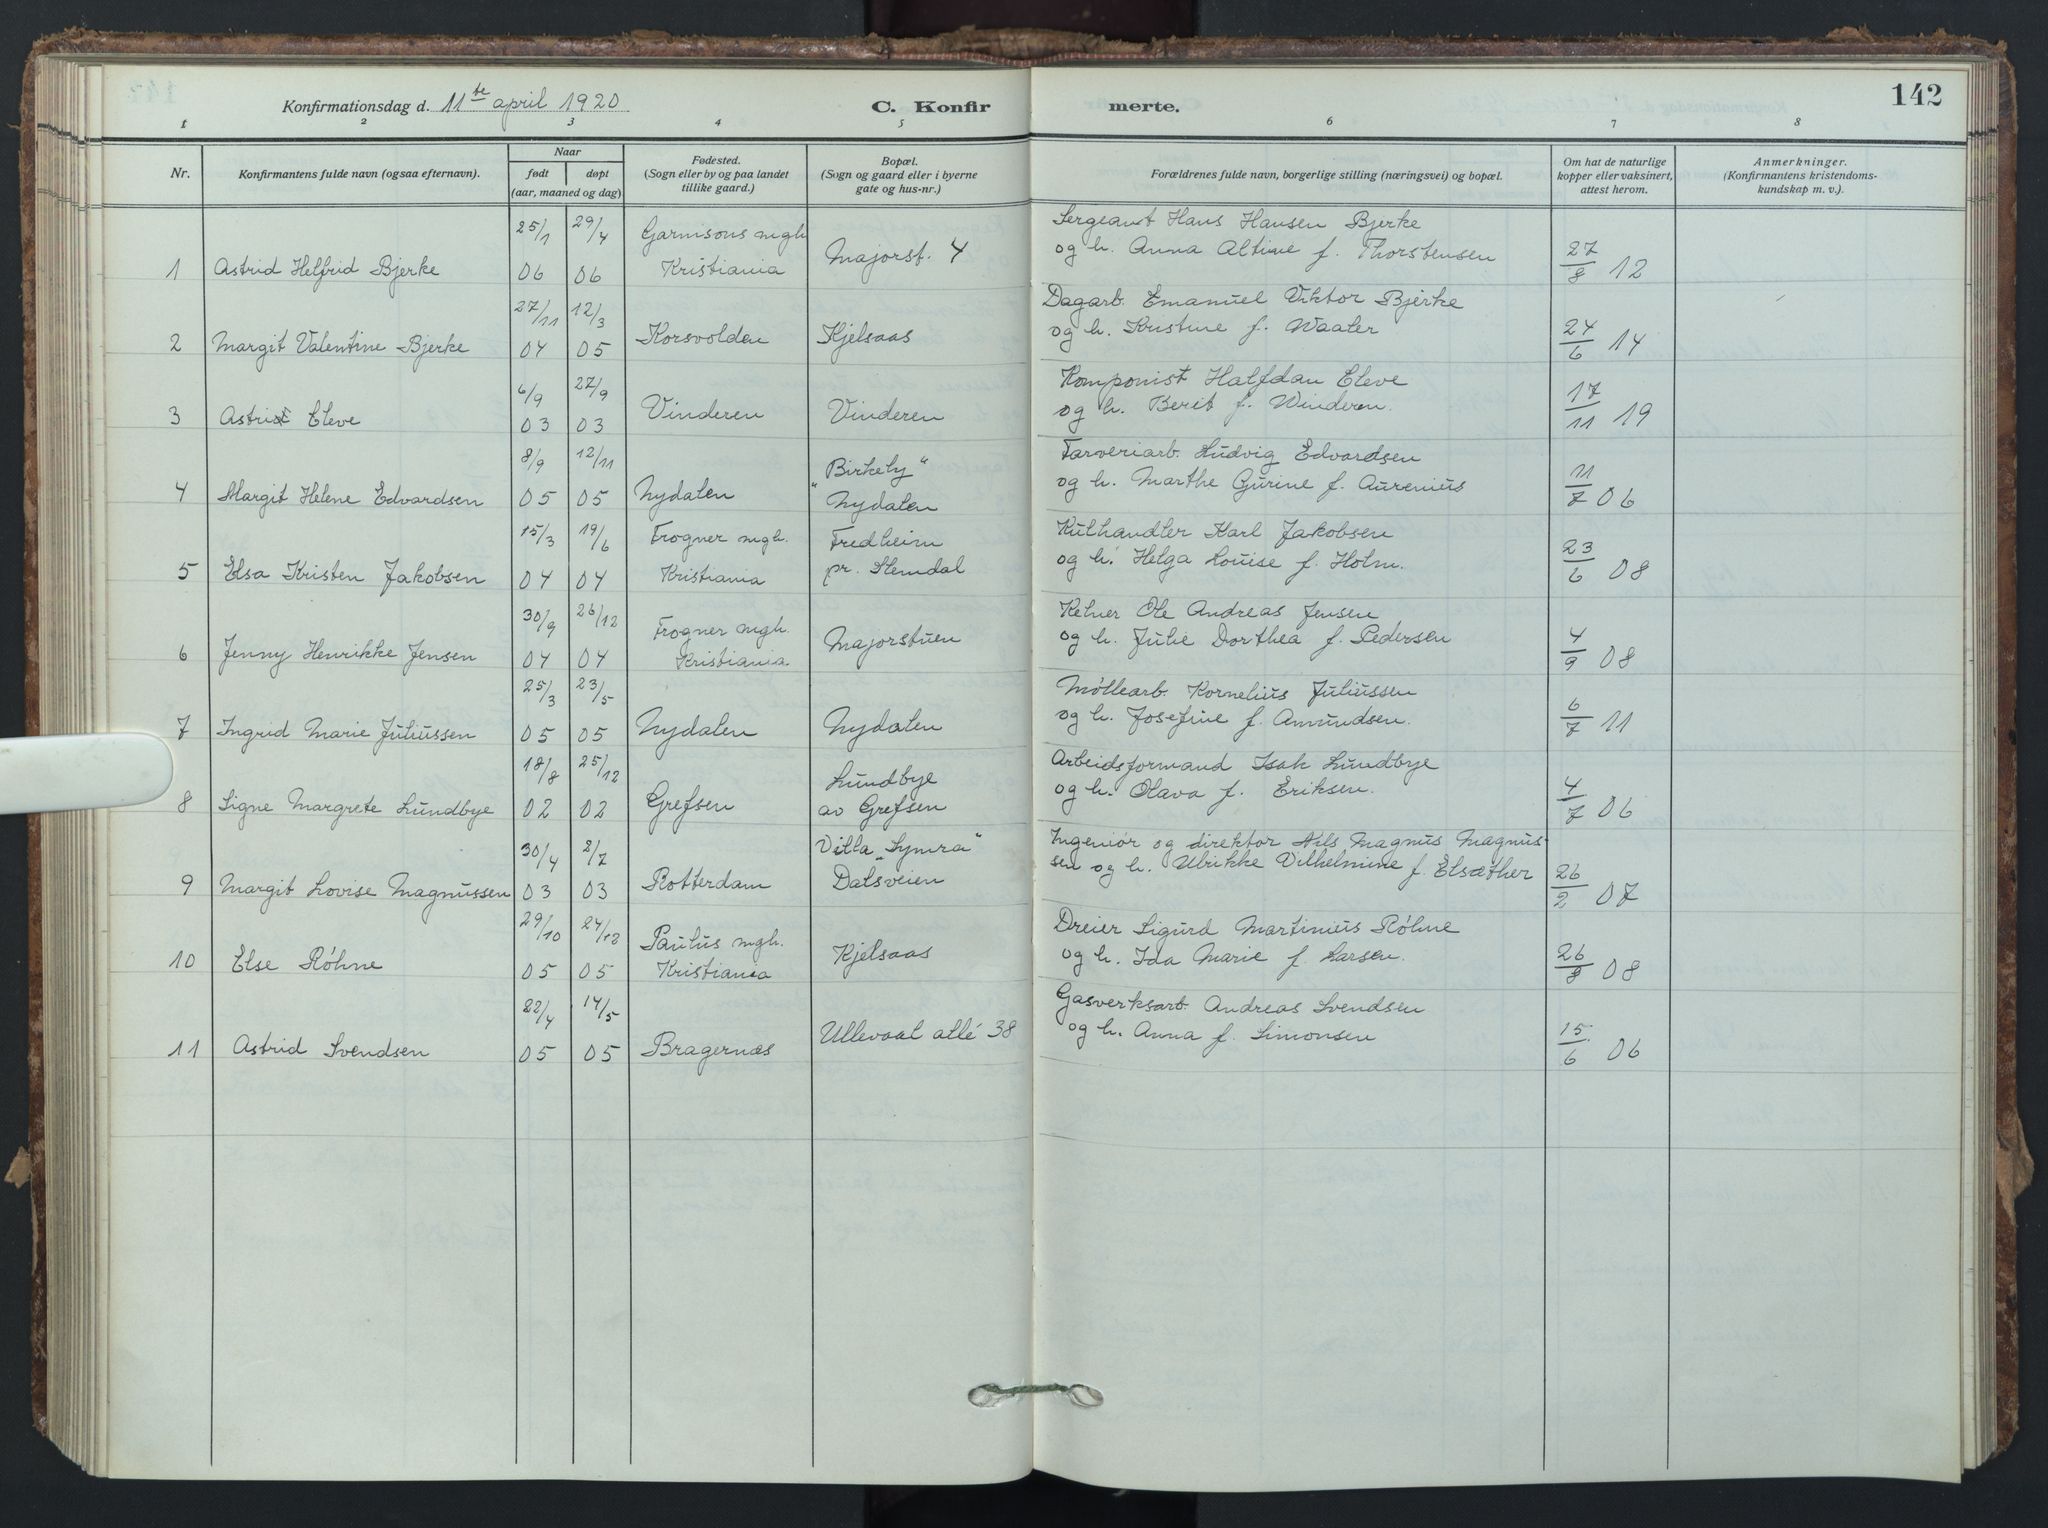 Konfirmationsdag d. 11te april 1920 C. Konfir merte. 142
1 2 3 4 5 6 7 8
Nr. Konfirmantens fulde navn (ogsaa efternavn). Naar født døpt (aar, maaned og dag) Fødested. (Sogn eller by og paa landet tillike gaard.) Bopæl. (Sogn og gaard eller i byerne gate og hus-nr.) Forældrenes fulde navn, borgerlige stilling (næringsvei) og bopæl. Om hat de naturlige kopper eller vaksinert, attest herom. Anmerkninger. (Konfirmantens kristendoms-kundskap m. v.).
25/1 29/4 Garnisons mgh. Sergeant Hans Hansen Bjerke
1 Astrid Helfrid Bjerke 06 06 Kristiania Majorst. 4 og h. Anna Altine f. Thorstensen 27/8 12
27/11 12/3 Dagarb. Emanuel Viktor Bjerke
2 Margit Valentine Bjerke 04 05 Korsvolden Kjelsaas og h. Kristine f. Waaler 24/6 14
6/9 27/9 Komponist Halfdan Cleve
3 Astrid Cleve 03 03 Vinderen Vinderen og h. Berit f. Winderen. 17/11 19
8/9 12/11 "Birkely" Farveriarb. Ludvig Edvardsen
4 Margit Helene Edvardsen 05 05 Nydalen Nydalen og h. Marthe Gurine f. Aurenius 11/7 06
15/3 19/6 Frogner mgh. Fredheim Kulhandler Karl Jakobsen
5 Elsa Kristen Jakobsen 04 04 Kristiania pr. Slemdal og h. Helga Louise f. Holm. 23/6 08
30/9 26/12 Frogner mgh. Kelner Ole Andreas Jensen
6 Jenny Henrikke Jensen 04 04 Kristiania Majorstuen og h. Julie Dorthea f. Pedersen 4/9 08
25/3 23/5 Møllearb. Kornelius Juliussen
7 Ingrid Marie Juliussen 05 05 Nydalen Nydalen og h. Josefine f. Amundsen. 6/7 11
18/8 25/12 Lundbye Arbeidsformand Isak Lundbye
8 Signe Margrete Lundbye 02 02 Grefsen av Grefsen og h. Olava f. Eriksen. 4/7 06
30/4 8/7 Villa "Symra" Ingeniør og direktør Nils Magnus Magnus-
9 Margit Lovise Magnussen 03 03 Rotterdam Dalsveien sen og h. Ulrikke Vilhelmine f. Elsæther 26/2 07
29/10 24/12 Paulus mgh. Dreier Sigurd Martinius Røhne
10 Else Røhne 05 05 Kristiania Kjelsaas og h. Ida Marie f. Larsen. 26/8 08
22/4 14/5 Gasverksarb. Andreas Svendsen
11 Astrid Svendsen 05 05 Bragernæs Ullevaal allé 38 og h. Anna f. Simonsen 15/6 06